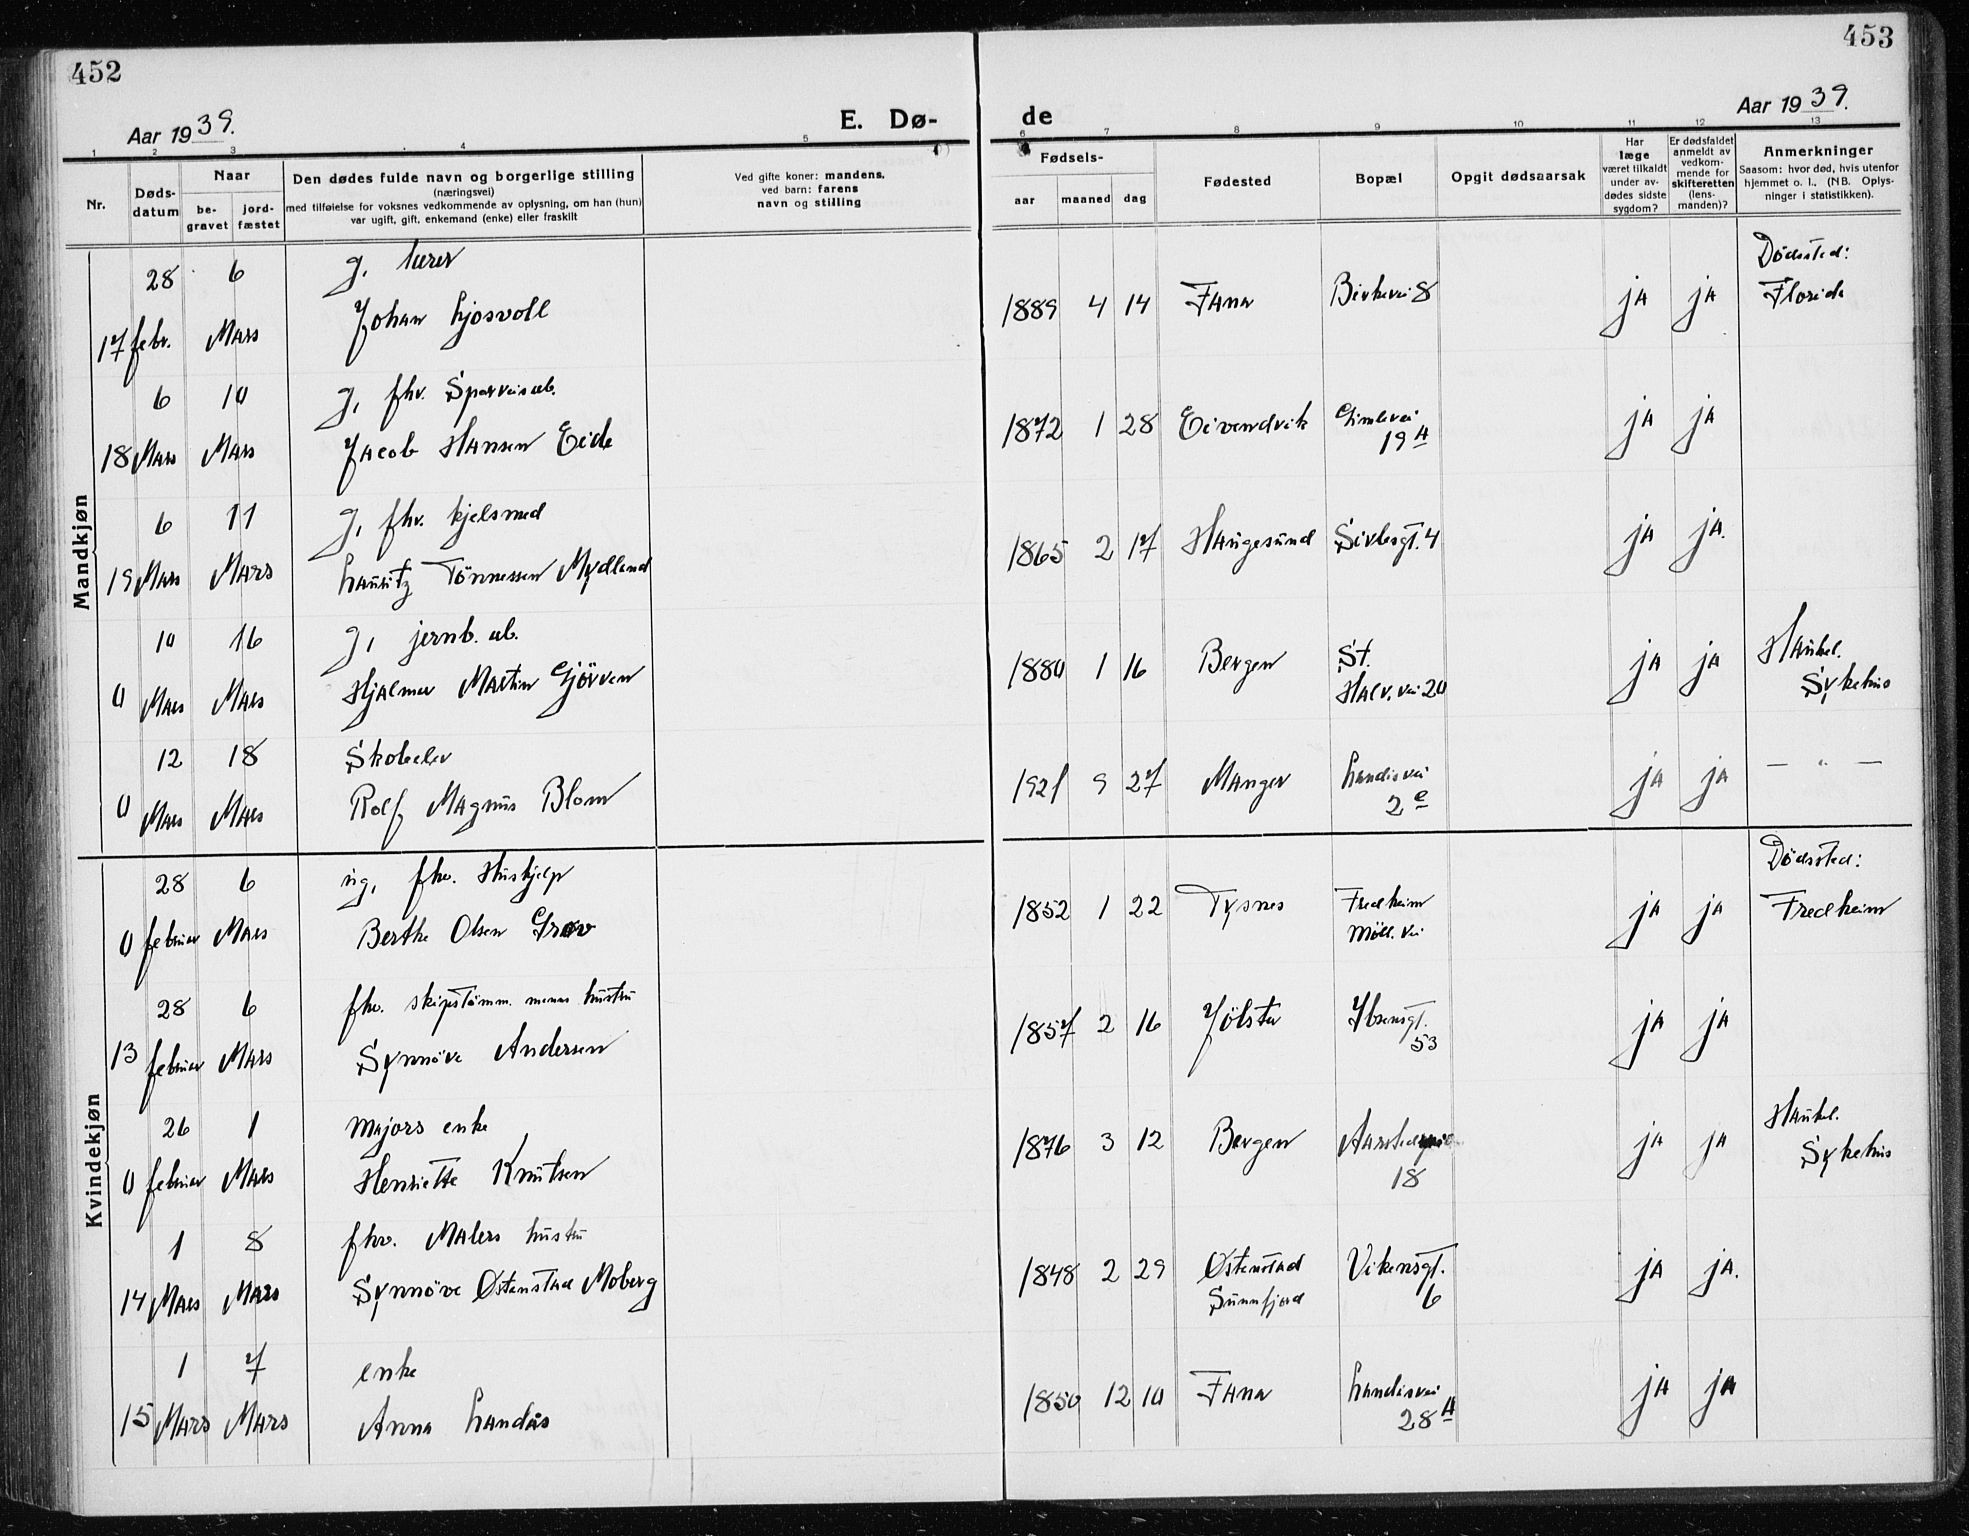 452
Aar 1939.
E. Dø-
1 2 3 4 5
Nr.
Døds-
datum
Naar
be-
gravet
jord-
fæstet
Den dødes fulde navn og borgerlige stilling
(næringsvei)
med tilføielse for voksnes vedkommende av oplysning, om han (hun)
var ugift, gift, enkemand (enke) eller fraskilt
Ved gifte koner: mandens.
ved barn: farens
navn og stilling
Mandkjøn
28 6 g, lærer
17 febr. Mars Johan Ljosvoll
6 10 g, fhv. Sporveisarb.
18 Mars Mars Jacob Hansen Eide
6 11 g, fhv. kjelsmed
19 Mars Mars Lauritz Tönnessen Mydland
10 16 g, jernb. arb.
0 Mars Mars Hjalmar Martin Gjörven
12 18 Skoleelev
0 Mars Mars Rolf Magnus Blom
Kvindekjøn
28 6 ug, fhv. Hushjelp
0 februar Mars Berthe Olsen Grov
28 6 fhv. skipstömm. manns hustru
13 februar Mars Synnöve Andersen
26 1 Majors enke
0 februar Mars Henriette Knutsen
1 8 fhv. Malers hustru
14 Mars Mars Synnöve Østenstad Moberg
1 7 enke
15 Mars Mars Anna Landås
453
de
Aar 1939.
6 7 8 9 10 11 12 13
Fødsels-
aar maaned dag
Fødested
Bopæl
Opgit dødsaarsak
Har
læge
været tilkaldt
under av-
dødes sidste
sygdom?
Er dødsfaldet
anmeldt av
vedkom-
mende for
skifteretten
(lens-
manden)?
Anmerkninger
Saasom: hvor død, hvis utenfor
hjemmet o. l., (NB. Oplys-
ninger i statistikken).
Dödssted:
1889 4 14 Fana Birkevei 8 ja ja Florida
1872 1 28 Eivendvik Gimlevei ja ja
19 A
1865 2 17 Haugesund Sivlesgt. 4 ja ja.
1880 1 16 Bergen St. ja ja Haukel.
Halv. vei 20 Sykehus
1921 9 27 Manger Landåsvei ja ja — " —
2 e
Dödssted:
1852 1 22 Tysnes Fredheim ja ja Fredheim
Möll. vei
1857 2 16 Jölster Ibsensgt. ja ja
53
1876 3 12 Bergen ja ja Haukel.
18 Sykehus
1848 2 29 Østenstad Vikensgt. ja ja.
Sunnfjord 6
1850 12 10 Fana Landåsvei ja ja
28 A